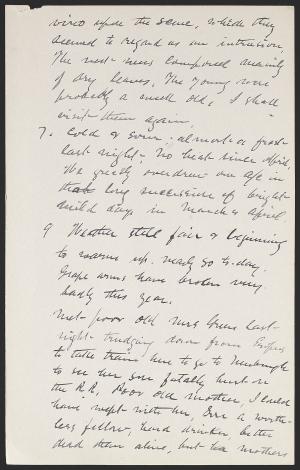 upon the scene, which they
seemed to regard as an intrusion.
The nest was composed mainly
of dry leaves. The young were
probably a week old. I shall
visit them again.
7. Cold & sour - almost a frost
last night. No heat since April.
We greatly overdrew our a/c in
that long succession of bright
mild days in March & April.
9 Weather still fair & beginning
to warm up. nearly 80 to-day.
Grape arms have broken very
badly this year.
Met poor old Mrs Green last
night trudging down from
to take train here to go to Newburgh
to see her son fatally hurt on
the R.R. Poor old mother, I could
have wept with her, Son a worth-
less fellow, hard drinker, better
dead than alive, but the mothers